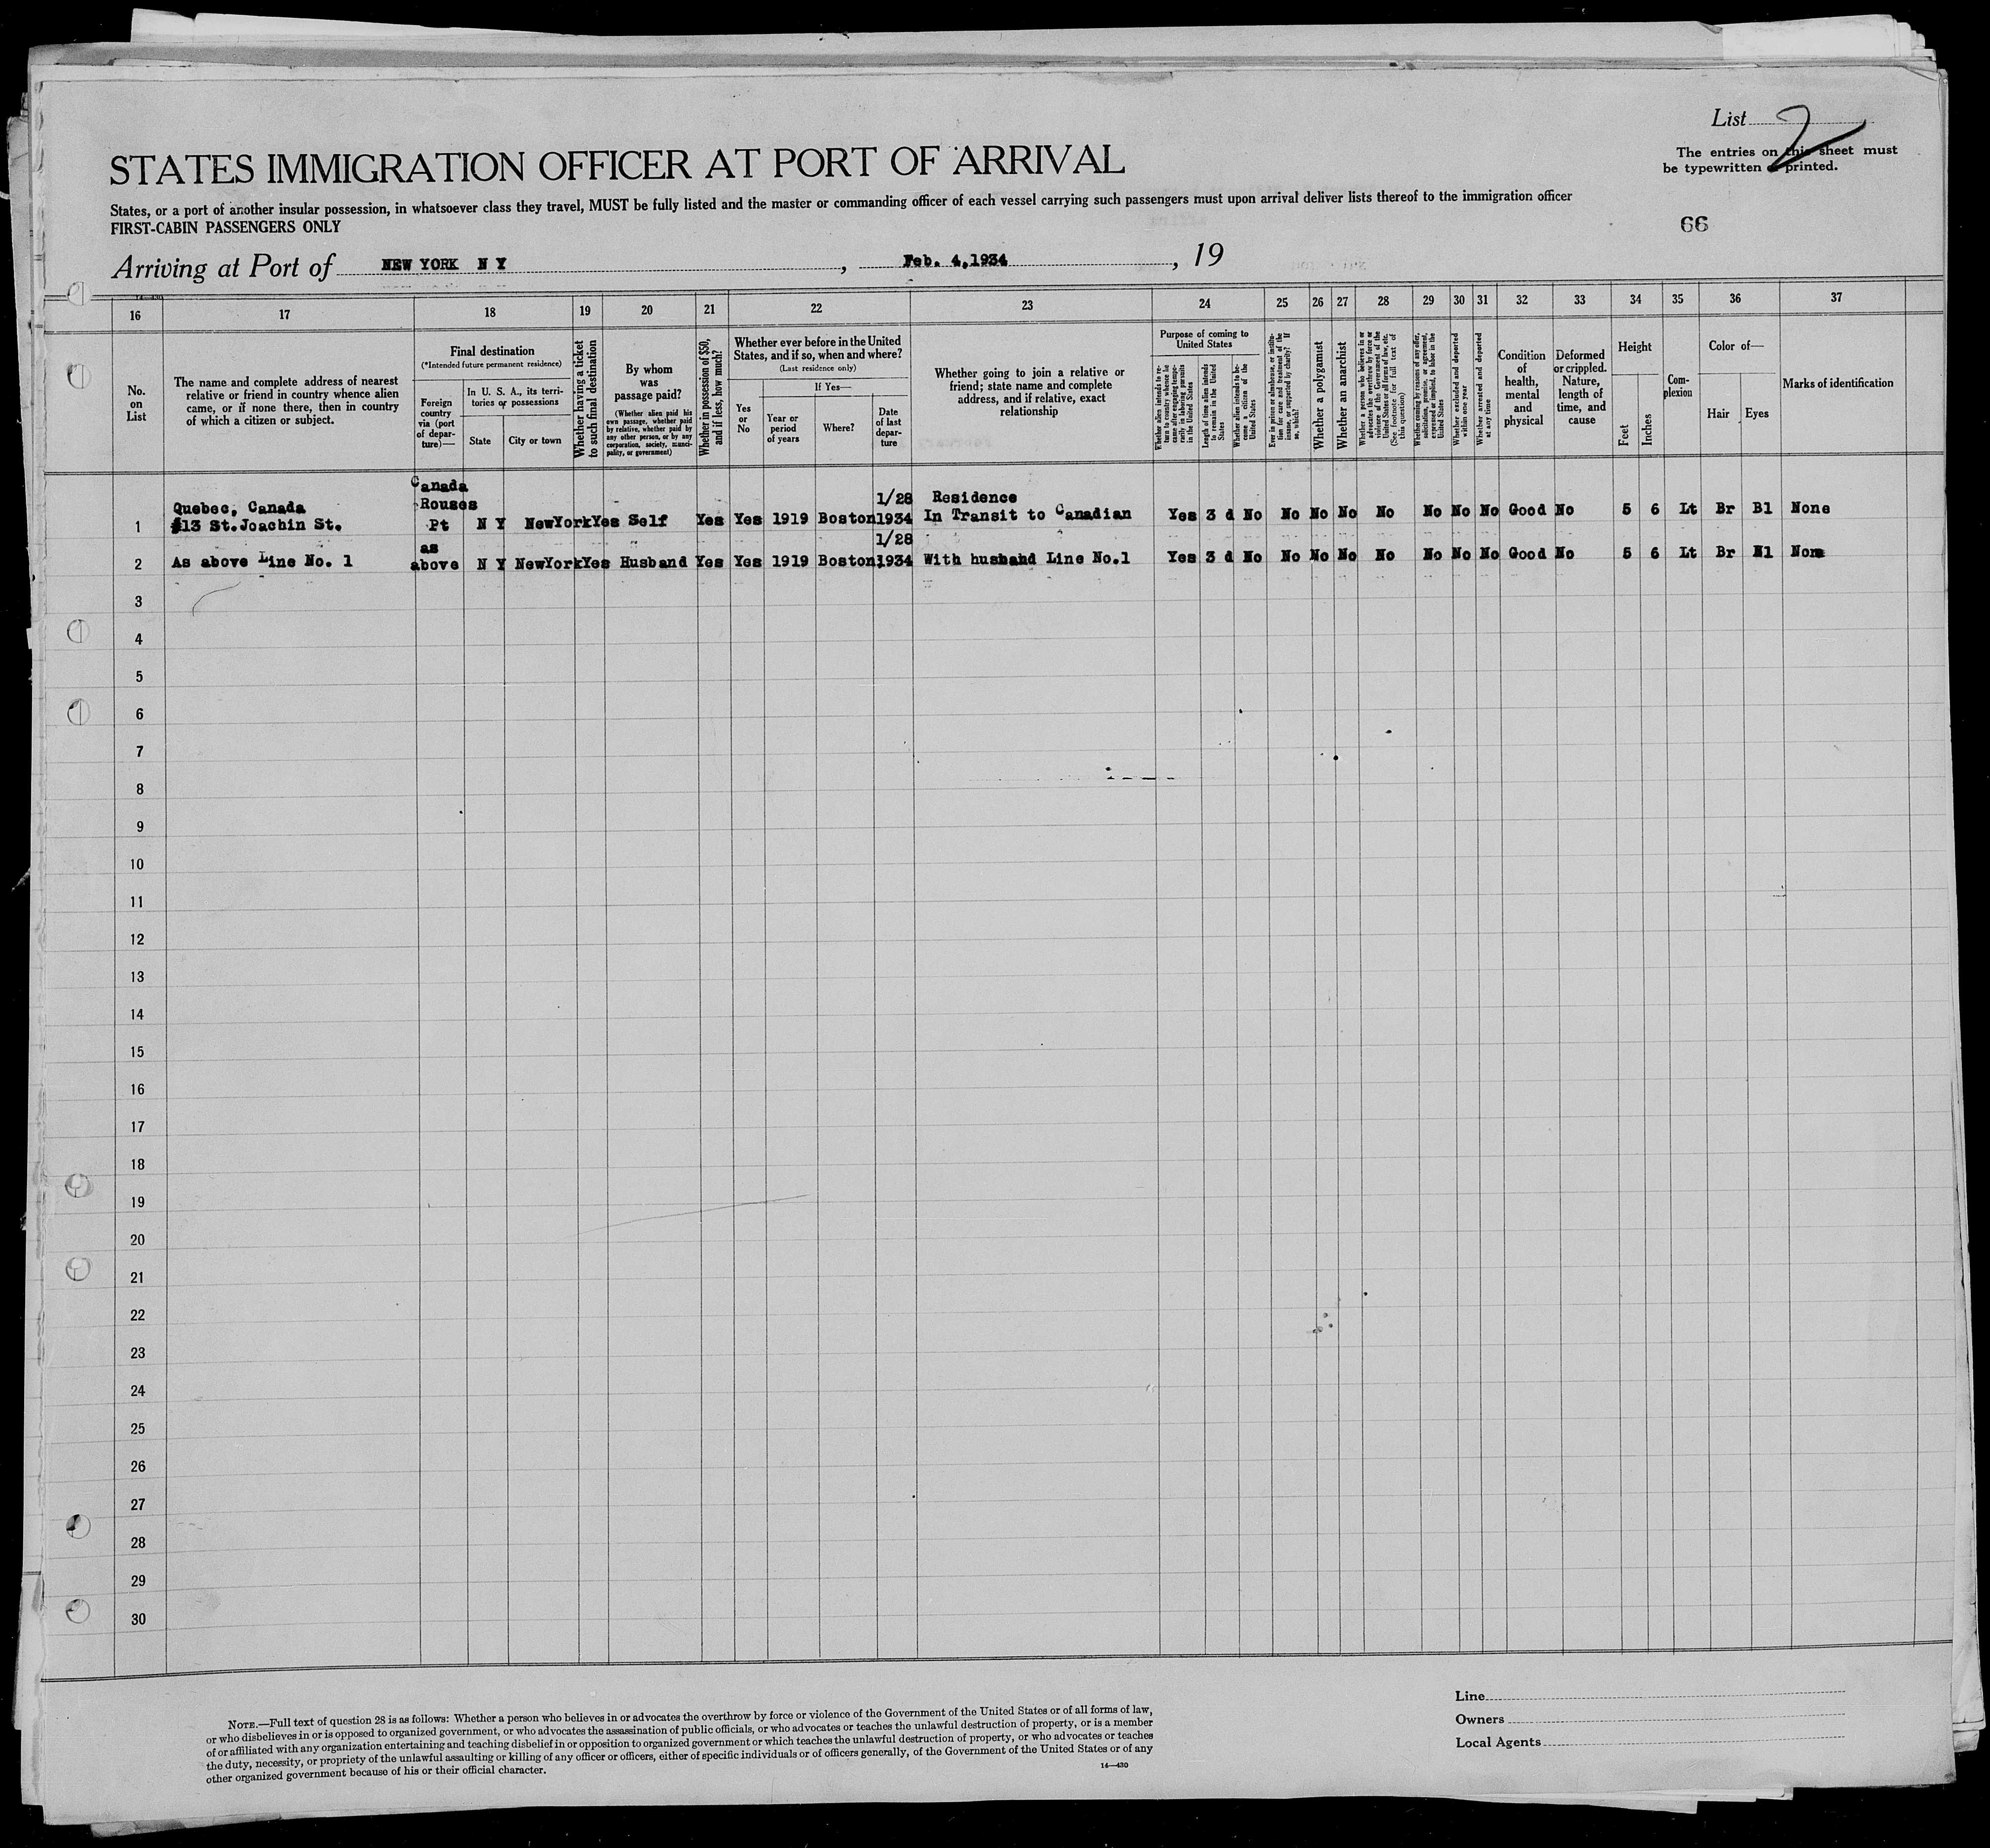 List 2
The entries on this sheet must
be typewritten or printed.
STATES IMMIGRATION OFFICER AT PORT OF ARRIVAL
States, or a port of another insular possession, in whatsoever class they travel, MUST be fully listed and the master or commanding officer of each vessel carrying such passengers must upon arrival deliver lists thereof to the immigration officer
FIRST-CABIN PASSENGERS ONLY
66
Arriving at Port of NEW YORK N Y, Feb. 4,1934, 19
14-430
16 17 18 19 20 21 22 23 24 25 26 27 28 29 30 31 32 33 34 35 36 37
No.
on
List
The name and complete address of nearest
relative or friend in country whence alien
came, or if none there, then in country
of which a citizen or subject.
Final destination
(*Intended future permanent residence)
Foreign
country
via (port
of depar-
ture)—
In U. S. A., its terri-
tories or possessions
State
City or town
Whether having a ticket
to such final destination
By whom
was
passage paid?
(Whether alien paid his
own passage, whether paid
by relative, whether paid by
any other person, or by any
corporation, society, munici-
pality, or government)
Whether in possession of $50,
and if less, how much?
Whether ever before in the United
States, and if so, when and where?
(Last residence only)
Yes
or
No
If Yes—
Year or
period
of years
Where?
Date
of last
depar-
ture
Whether going to join a relative or
friend; state name and complete
address, and if relative, exact
relationship
Purpose of coming to
United States
Whether alien intends to re-
turn to country whence he
came after engaging tempo-
rarily in laboring pursuits
in the United States
Length of time alien intends
to remain in the United
States
Whether alien intends to be-
come a citizen of the
United States
Ever in prison or almshouse, or institu-
tion for care and treatment of the
insane, or supported by charity? If
so, which?
Whether a polygamist
Whether an anarchist
Whether a person who believes in or
advocates the overthrow by force or
violence of the Government of the
United States or all forms of law, etc.
(See footnote for full text of
this question)
Whether coming by reasons of any offer,
solicitation, promise, or agreement,
expressed or implied, to labor in the
United States
Whether excluded and deported
within one year
Whether arrested and deported
at any time
Condition
of
health,
mental
and
physical
Deformed
or crippled.
Nature,
length of
time, and
cause
Height
Feet
Inches
Com-
plexion
Color of—
Hair
Eyes
Marks of identification
Canada
Rouses 1/28 Residence
Quebec, Canada
1 #13 St.Joachin St. Pt N Y NewYork Yes Self Yes Yes 1919 Boston 1934 In Transit to Canadian Yes 3 d No No No No No No No No Good No 5 6 Lt Br Bl None
as 1/28
2 As above Line No. 1 above N Y NewYork Yes Husband Yes Yes 1919 Boston 1934 With husband Line No.1 Yes 3 d No No No No No No No No Good No 5 6 Lt Br None
3
4
5
6
7
8
9
10
11
12
13
14
15
16
17
18
19
20
21
22
23
24
25
26
27
28
29
30
NOTE.—Full text of question 28 is as follows: Whether a person who believes in or advocates the overthrow by force or violence of the Government of the United States or of all forms of law,
or who disbelieves in or is opposed to organized government, or who advocates the assassination of public officials, or who advocates or teaches the unlawful destruction of property, or is a member
of or affiliated with any organization entertaining and teaching disbelief in or opposition to organized government or which teaches the unlawful destruction of property, or who advocates or teaches
the duty, necessity, or propriety of the unlawful assaulting or killing of any officer or officers, either of specific individuals or of officers generally, of the Government of the United States or of any
other organized government because of his or their official character.
14—430
Line
Owners
Local Agents